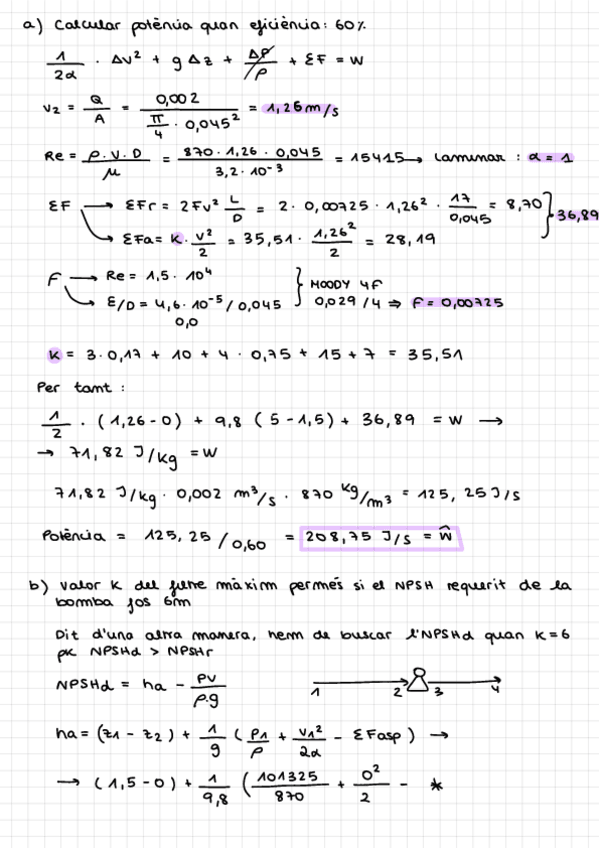 a) Calcular potència quan eficiència: 60%
1/2α · Δv² + gΔz + ΔP/ρ + ΣF = W
v2 = Q/A = 0,002 / (π/4 · 0,045²) = 1,26 m/s
Re = ρ.V.D/μ = 870 · 1,26 · 0,045 / 3,2 · 10⁻³ = 15415 → Laminar : α = 1
ΣF → ΣFr = 2Fv² L/D = 2 · 0,00725 · 1,26² · 17/0,045 = 8,70 } 36,89
→ ΣFa = K · v²/2 = 35,51 · 1,26²/2 = 28,19
F → Re = 1,5 · 10⁴ } MOODY 4F
→ Ɛ/D = 4,6 · 10⁻⁵ / 0,045 0,029 / 4 ⇒ F = 0,00725
0,0
K = 3 · 0,17 + 10 + 4 · 0,75 + 15 + 7 = 35,51
Per tant :
1/2 · (1,26 - 0) + 9,8 (5 - 1,5) + 36,89 = W →
→ 71,82 J/kg = W
71,82 J/kg · 0,002 m³/s · 870 kg/m³ = 125,25 J/s
Potència = 125,25 / 0,60 = 208,75 J/s = Ŵ
b) Valor K del filtre màxim permés si el NPSH requerit de la
bomba fos 6m
Dit d'una altra manera, hem de buscar l'NPSHd quan K = 6
pk NPSHd > NPSHr
NPSHd = ha - PV/ρ.g 1 2 3 4
ha = (z1 - z2) + 1/g (P1/ρ + V1²/2α - ΣFasp) →
→ (1,5 - 0) + 1/9,8 (101325/870 + 0²/2 - *